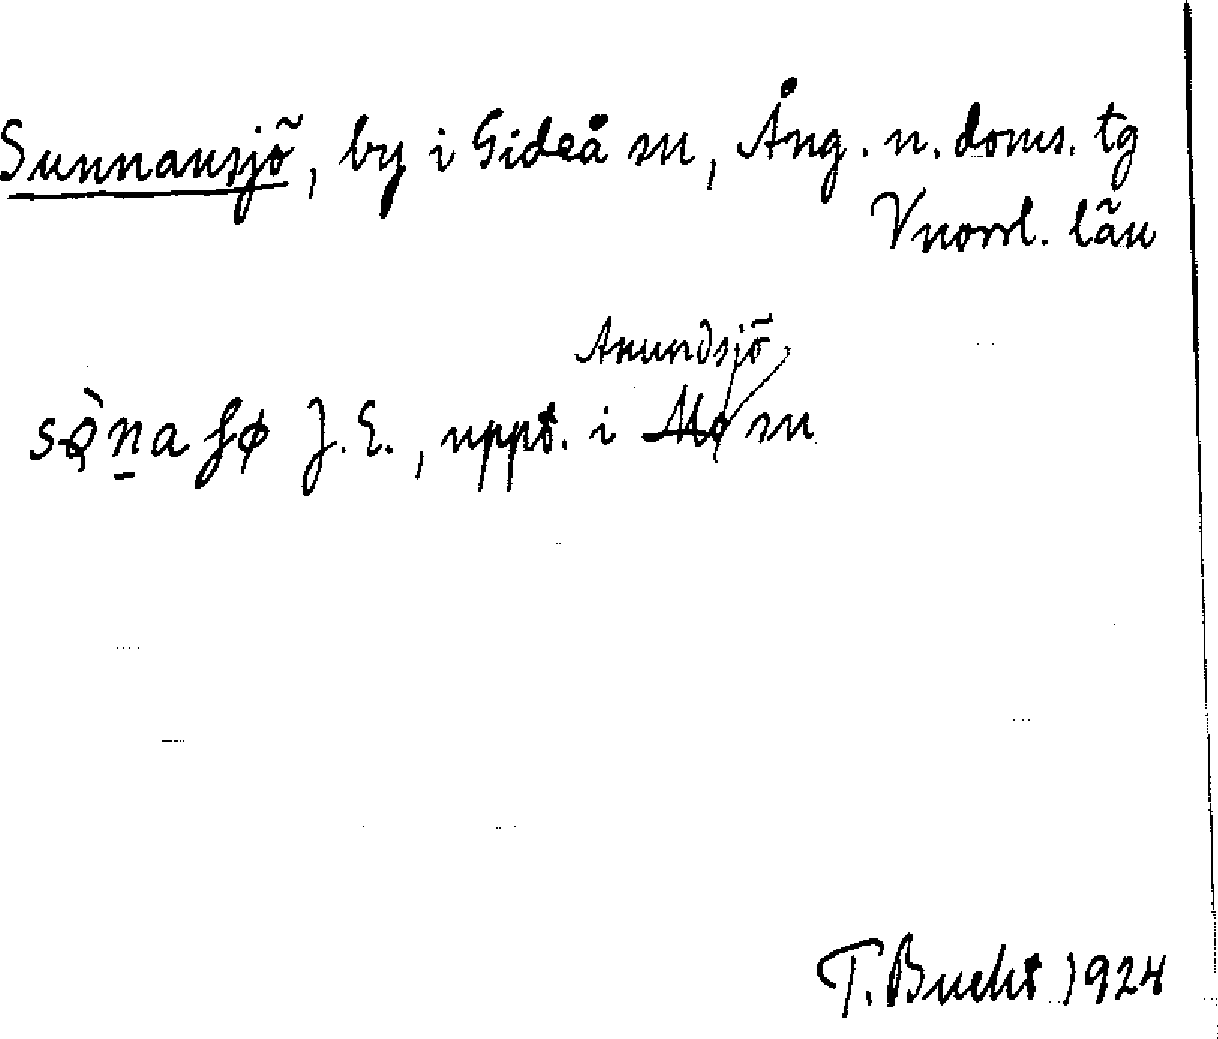 Sunnansjö, by i Gideå sn, Ång. n. doms. tg
Vnorrl. län
Anundsjö
J.E., uppt. i Mo sn
T. Bucht 1924